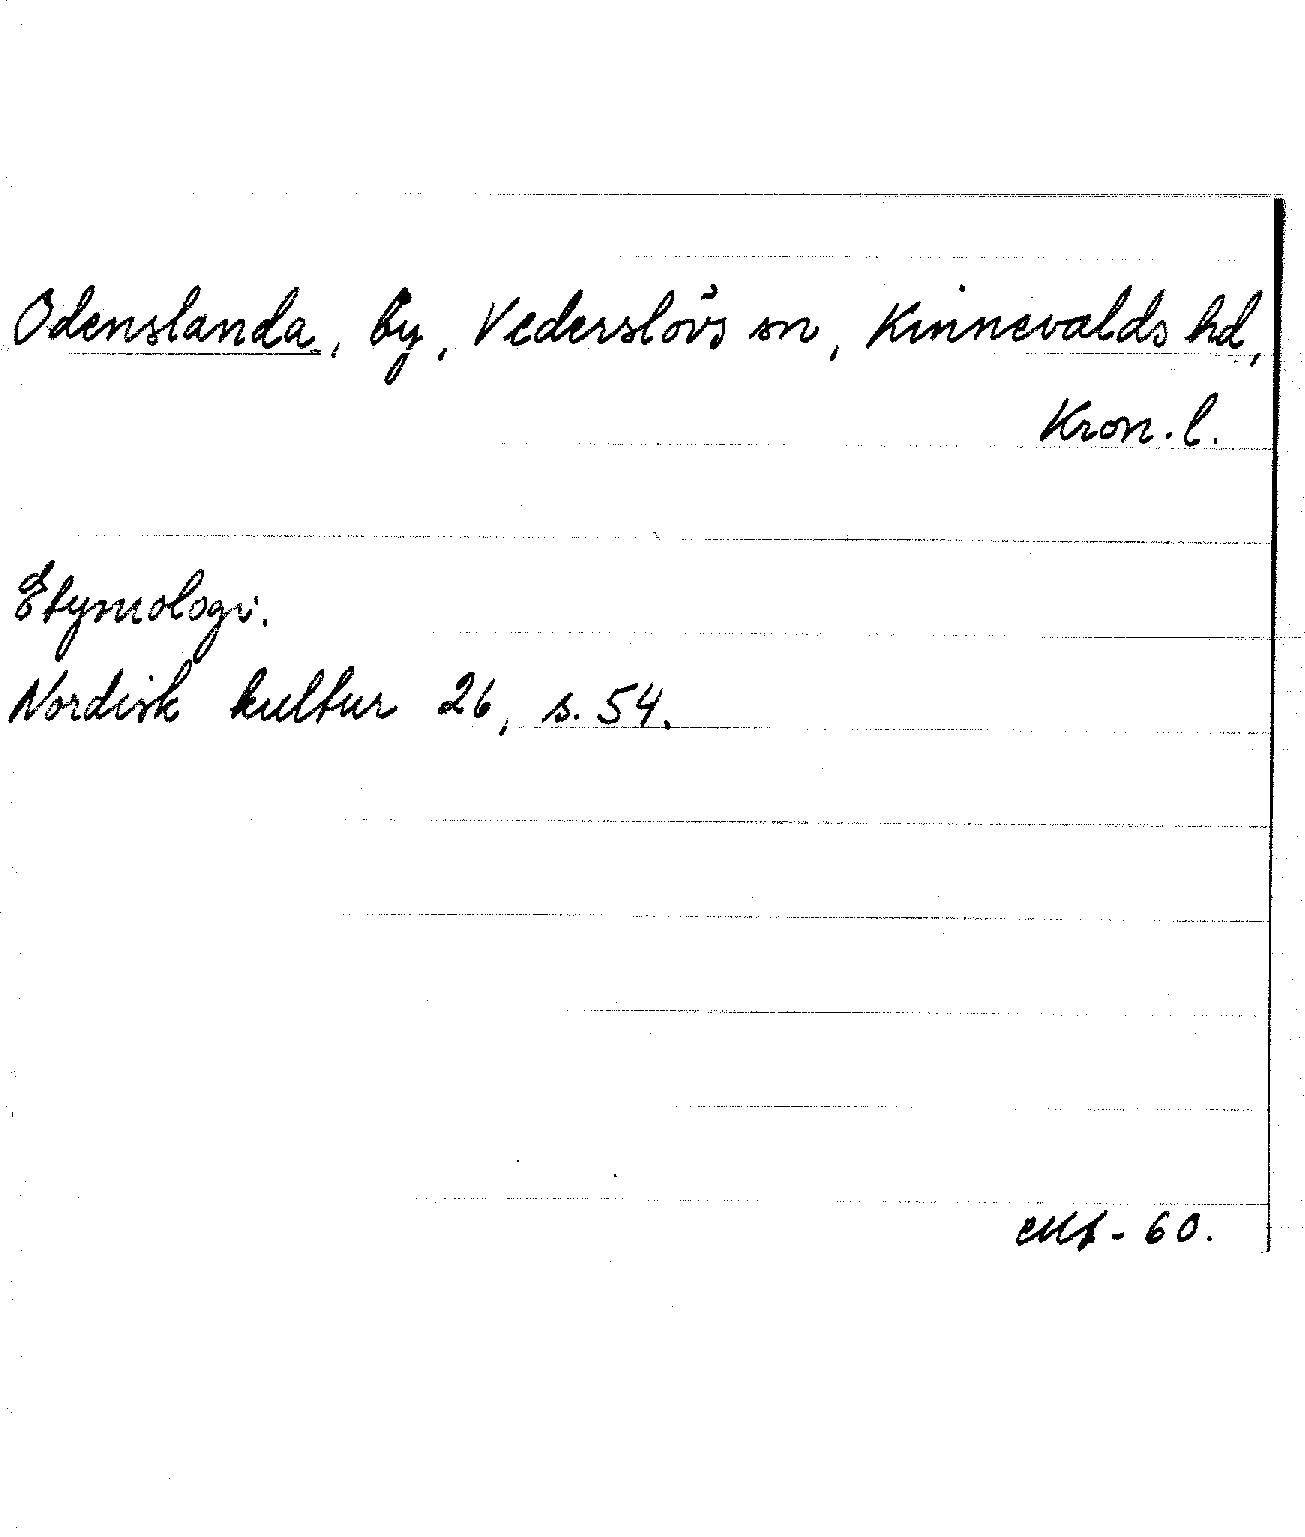 Odenslanda, by, Vederslövs sn, Kinnevalds hd,
Kron. l.
Etymologi.
Nordisk kultur 26, s. 54.
- 60.